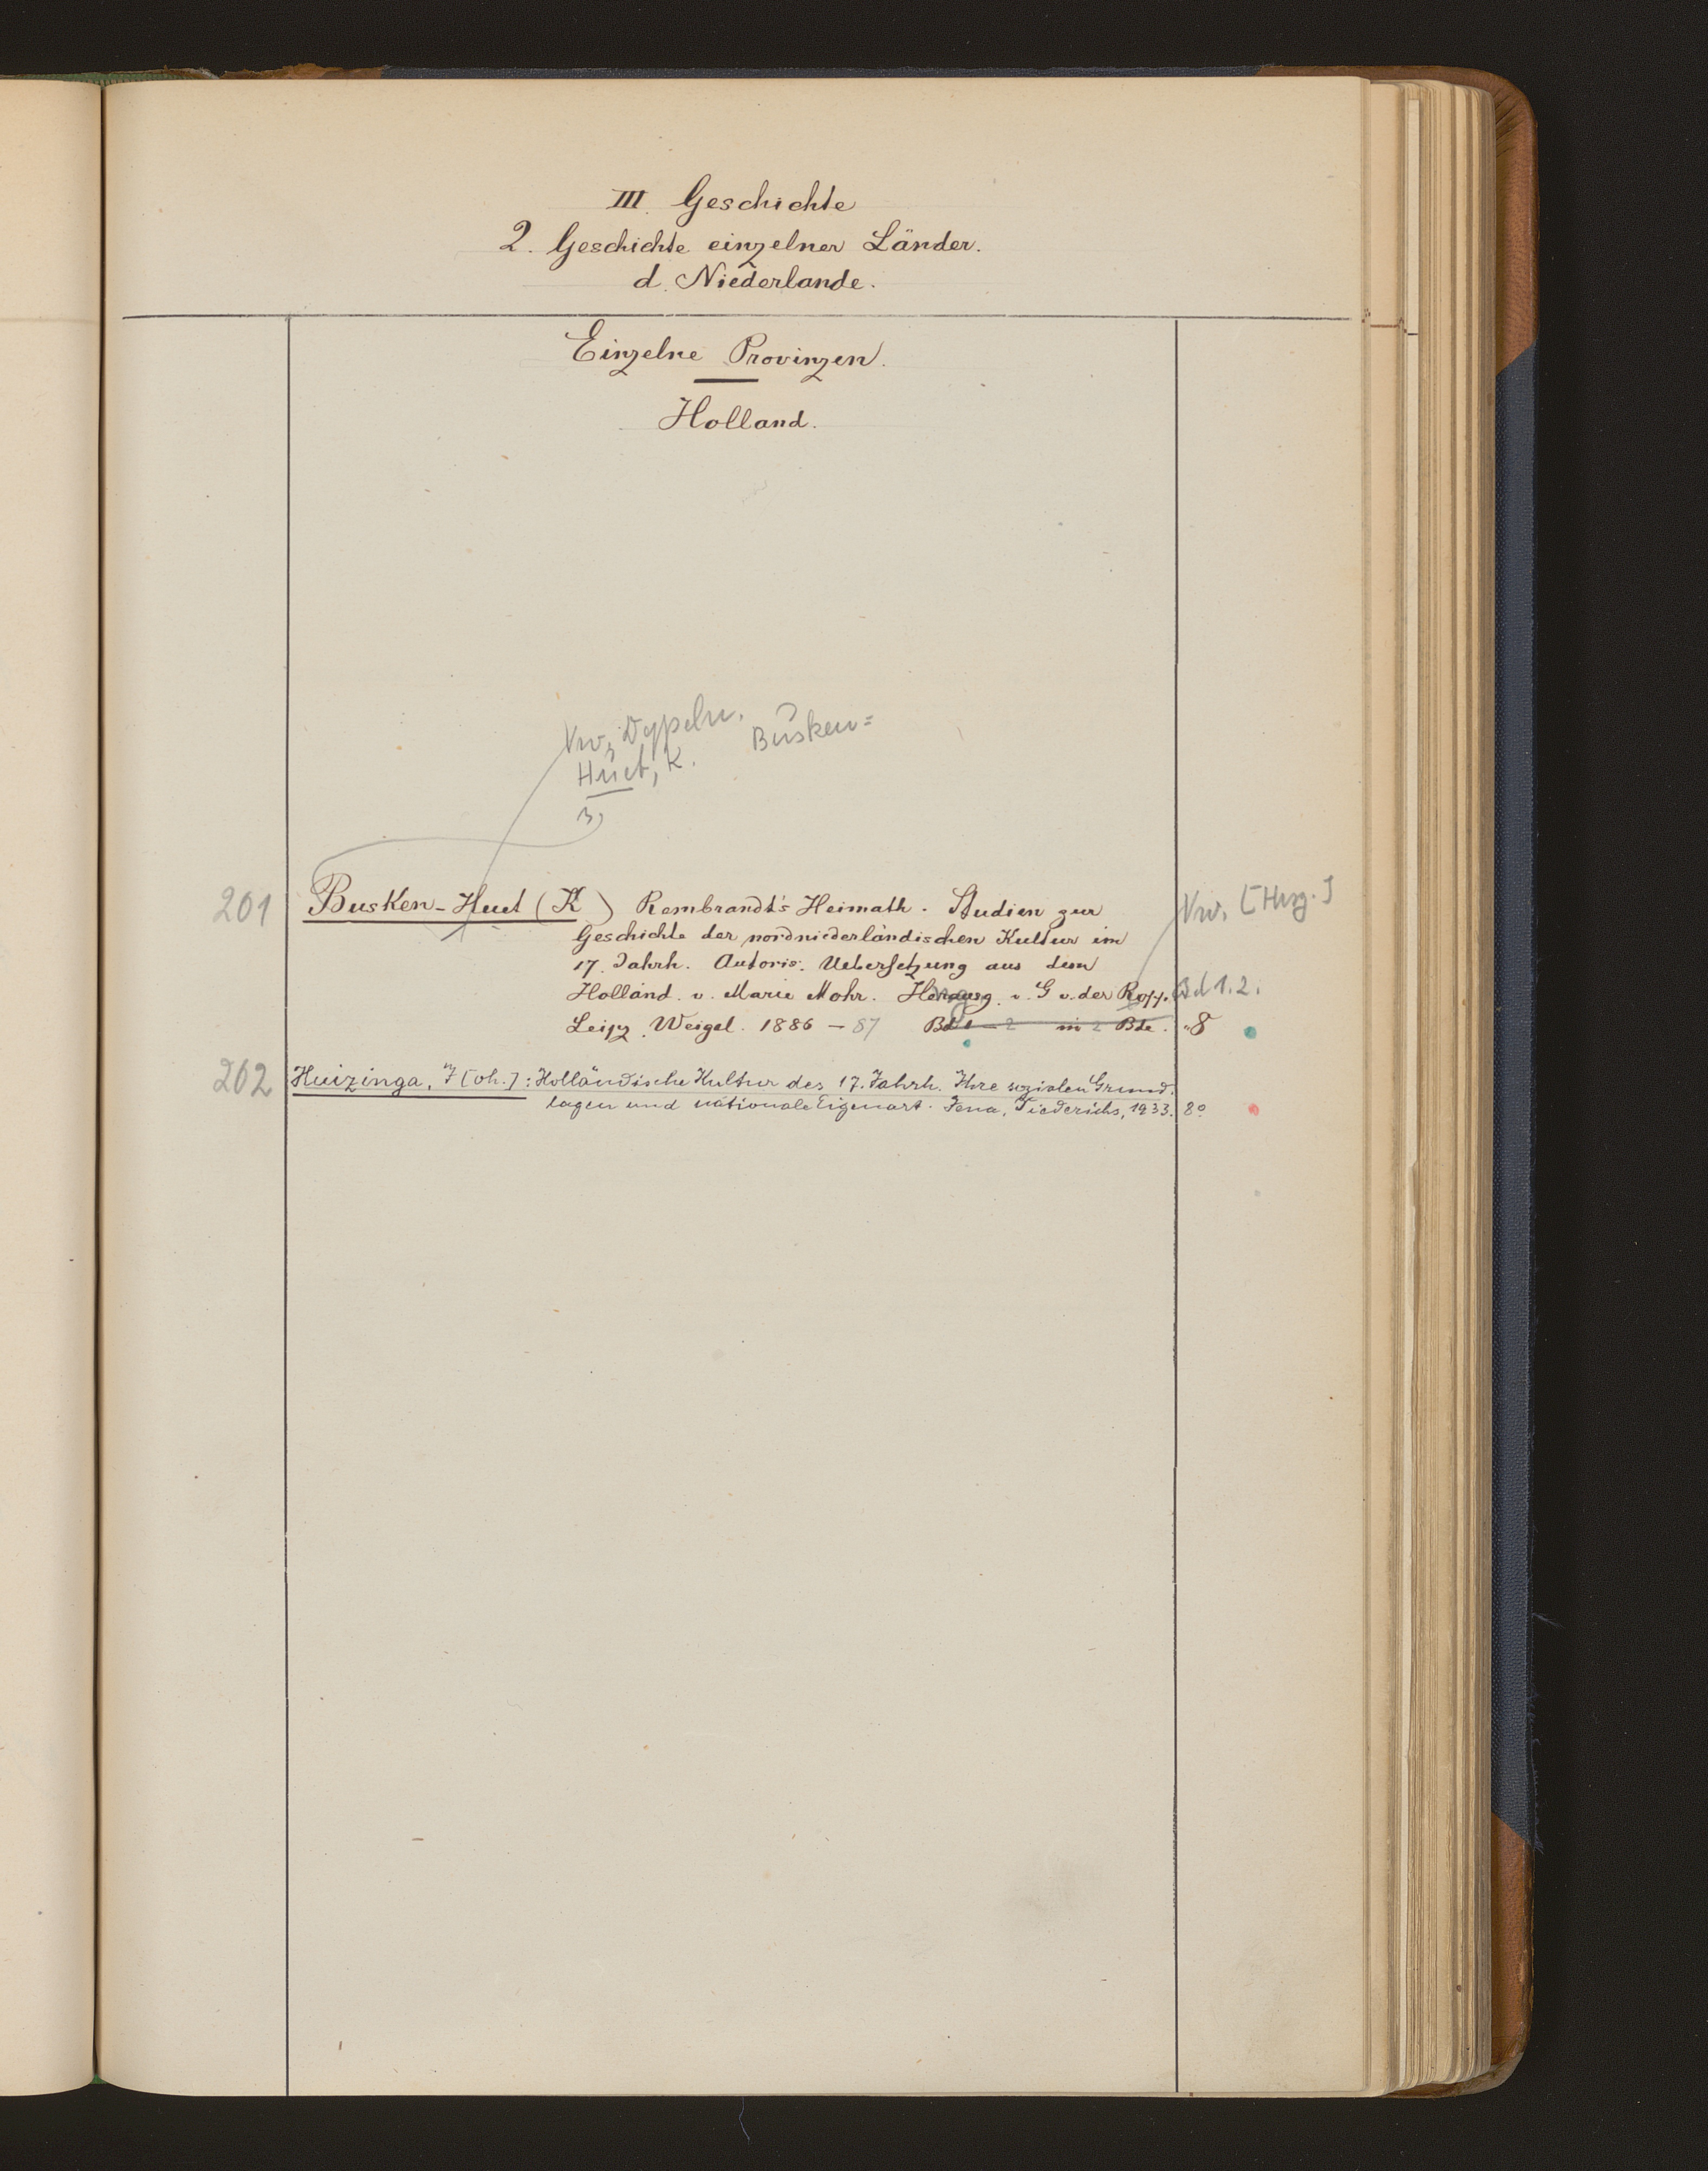 III. Geschichte
2. Geschichte einzelner Länder.
d. Niederlande.
Einzelne Provinzen.
Holland.
Vw,
Huet, K. Busken=
201 Busken-Huet (K) Rembrandt's Heimath. Studien zur Vw. [Hrsg.]
Geschichte der nordniederländischen Kultur im
17. Jahrh. Autoris. Uebersetzung aus dem
Holländ. v. Marie Mohr. Herausg. v. G v. der Ropp. Bd 1.2.
Leipz. Weigel. 1886-87 Bd 1-2 in 2 Bde. 8
202 Huizinga, J[oh.]: Holländische Kultur des 17. Jahrh. Ihre sozialen Grund-
lagen und nationale Eigenart. Jena, Diederichs, 1933. 8°